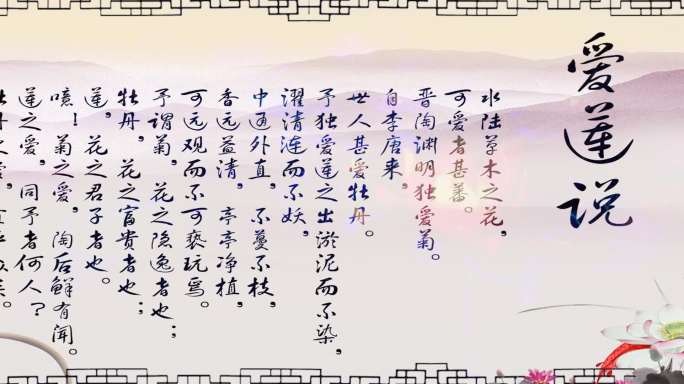 爱莲说
水陆草木之花，
可爱者甚蕃。
晋陶渊明独爱菊。
自李唐来，
世人甚爱牡丹。
予独爱莲之出淤泥而不染，
濯清涟而不妖，
中通外直，不蔓不枝，
香远益清，亭亭净植，
可远观而不可亵玩焉。
予谓菊，花之隐逸者也；
牡丹，花之富贵者也；
莲，花之君子者也。
噫！菊之爱，陶后鲜有闻。
莲之爱，同予者何人？